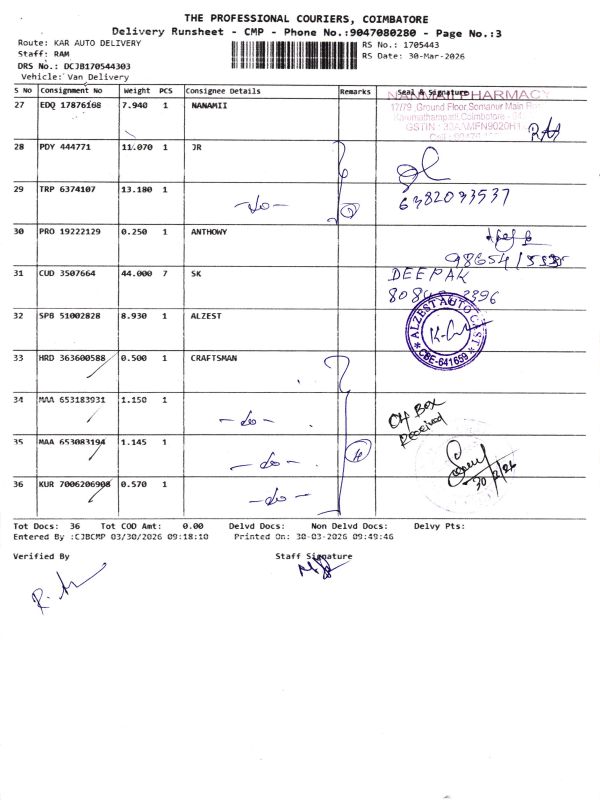 THE PROFESSIONAL COURIERS, COIMBATORE
Delivery Runsheet - CMP - Phone No.:9047080280 - Page No.:3
Route: KAR AUTO DELIVERY
RS No.: 1705443
Staff: RAM
RS Date: 30-Mar-2026
DRS No.: DCJB170544303
Vehicle: Van Delivery
S NO Consignment No Weight PCS Consignee Details Remarks Seal & Signature
27 EDQ 17876168 7.940 1 NANAMII
NANMAI PHARMACY
17/79, Ground Floor, Somanur Main
Karumathampatti, Coimbatore
28 PDY 444771 11.070 1 JR
29 TRP 6374107 13.180 1 -do- 2
6382093537
30 PRO 19222129 0.250 1 ANTHOWY
31 CUD 3507664 44.000 7 SK DEEPAK
32 SPB 51002828 8.930 1 ALZEST
ALZEST AUTO CAST
CBE-641659
33 HRD 363600588 0.500 1 CRAFTSMAN
34 MAA 653183931 1.150 1 -do-
04 Box
Received
35 MAA 653083194 1.145 1 -do- 4
36 KUR 7006206908 0.570 1 -do-
30/3/26
Tot Docs: 36 Tot COD Amt: 0.00 Delvd Docs: Non Delvd Docs: Delvy Pts:
Entered By :CJBCMP 03/30/2026 09:18:10 Printed On: 30-03-2026 09:49:46
Verified By Staff Signature